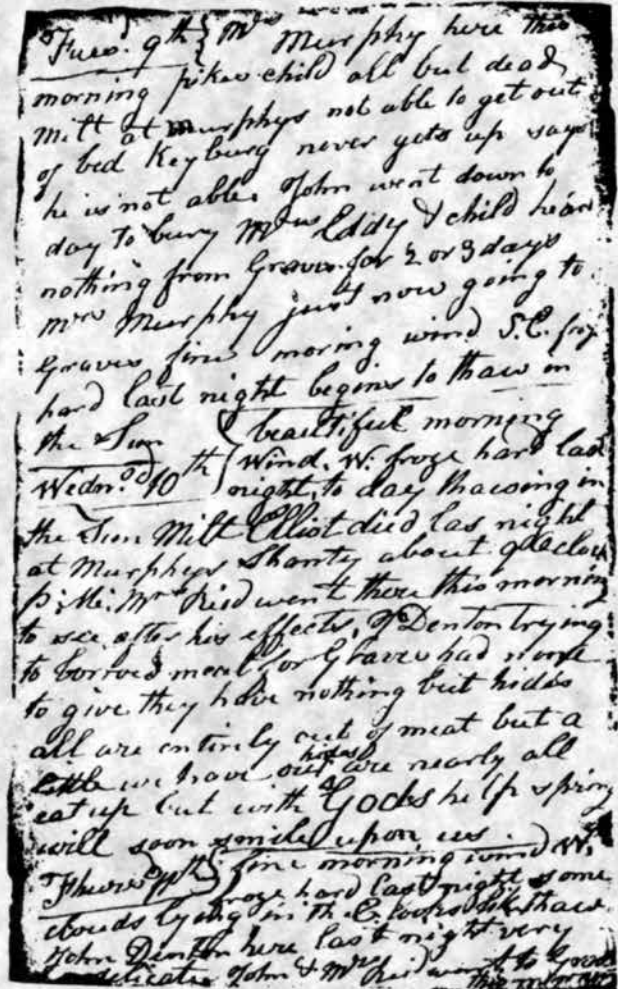 Tuesd. 9th Mrs Murphy here this
morning pikes child all but dead
Milt at Murphys not able to get out
of bed Keyburg never gets up says
he is not able. John went down to
day to bury Mrs Eddy & child heard
nothing from Graves for 2 or 3 days
Mrs Murphy just now going to
Graves fine moring wind S.E. froze
hard last night begins to thaw in
the Sun
Wednsd. 10th beautiful morning
Wind. W. froze hard last
night, to day thawing in
the Sun Milt Elliot died las night
at Murphys Shanty about 9 Oclock
P.M. Mrs Reid went there this morning
to see after his effects. J Denton trying
to borrow meat for Graves had none
to give they have nothing but hides
all are entirely out of meat but a
little we have our hides are nearly all
eat up but with Gods help spring
will soon smile upon us.
Thursd 11th fine morning wind W.
froze hard last night some
clouds lying in the E. looks like thaw
John Denton here last night very
delicate. John & Mrs Reid went to Graves
this morning